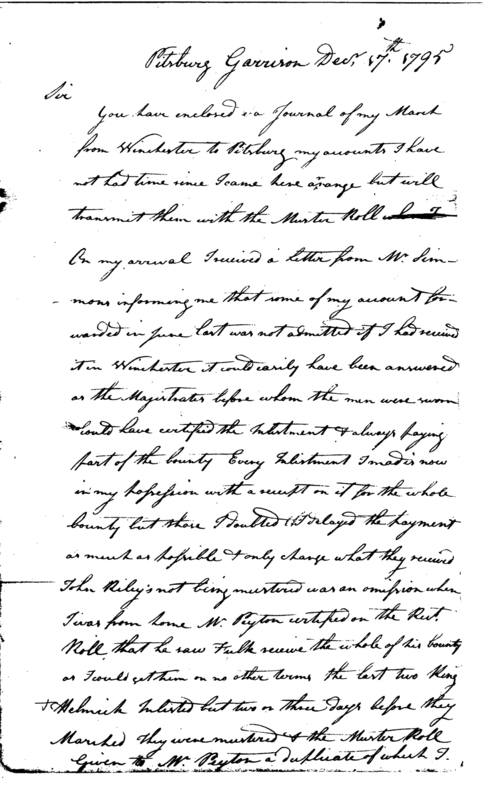 Pitsburg Garrison Decr. 17th. 1795
Sir
You have enclosed a Journal of my March
from Winchester to Pitsburg my accounts I have
not had time since I came here arange but will
transmit them with the Muster Roll
On my arrival I received a Letter from Mr Sim-
mons informing me that some of my account for-
warded in June last was not admitted if I had received
it in Winchester it could easily have been answered
as the Magistrates before whom the men were sworn
could have certified the Inlistment & always paying
part of the bounty Every Inlistment I made is now
in my possession with a receipt on it for the whole
bounty but those I doubted I delayed the payment
as much as possible & only charge what they received
John Riley's not being mustered was an omission when
I was from home Mr Peyton certified on the Rect.
Roll that he saw Fulk receive the whole of his bounty
as I could get them on no other terms the last two King
& Helmick Inlisted but two or three days before they
Marched they were mustered & the Muster Roll
Given to Mr. Peyton a duplicate of which I